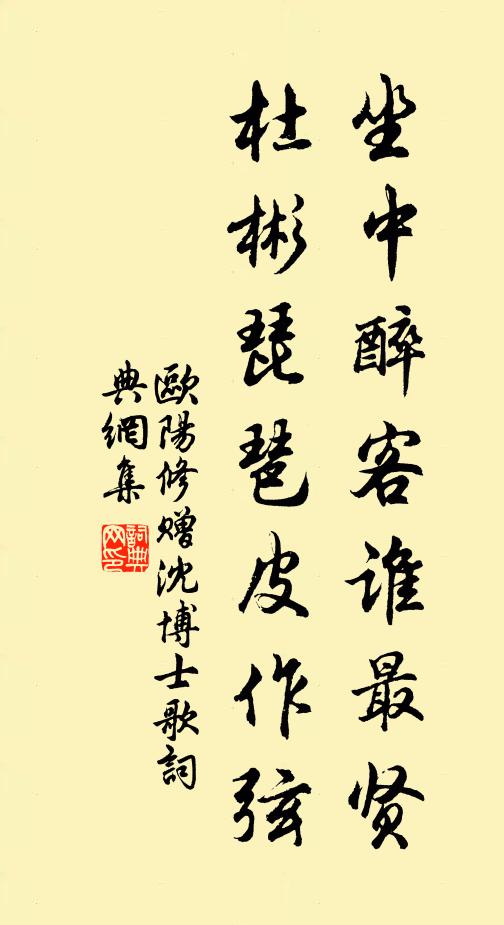 坐中醉客谁最贤
杜彬琵琶皮作弦
歐陽修贈沈博士歌詞
典網集
詞典
网印